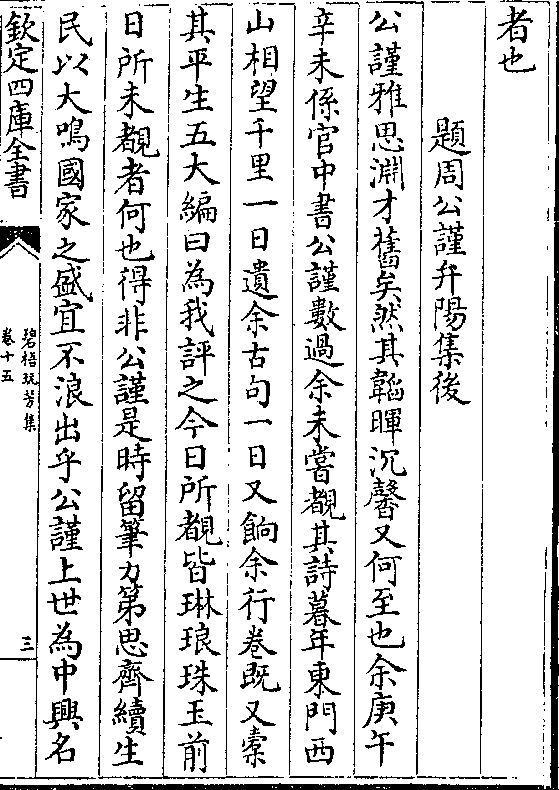 者也
題周公謹弁陽集後
公謹雅思淵才舊矣然其韜暉沉馨又何至也余庚午
辛未係官中書公謹數過余未嘗覩其詩暮年東門西
山相望千里一日遺余古句一日又餉余行卷既又橐
其平生五大編曰為我評之今日所覩皆琳琅珠玉前
日所未覩者何也得非公謹是時留筆力第思齊續生
民以大鳴國家之盛宜不浪出乎公謹上世為中興名
欽定四庫全書
碧梧玩芳集
卷十五
三